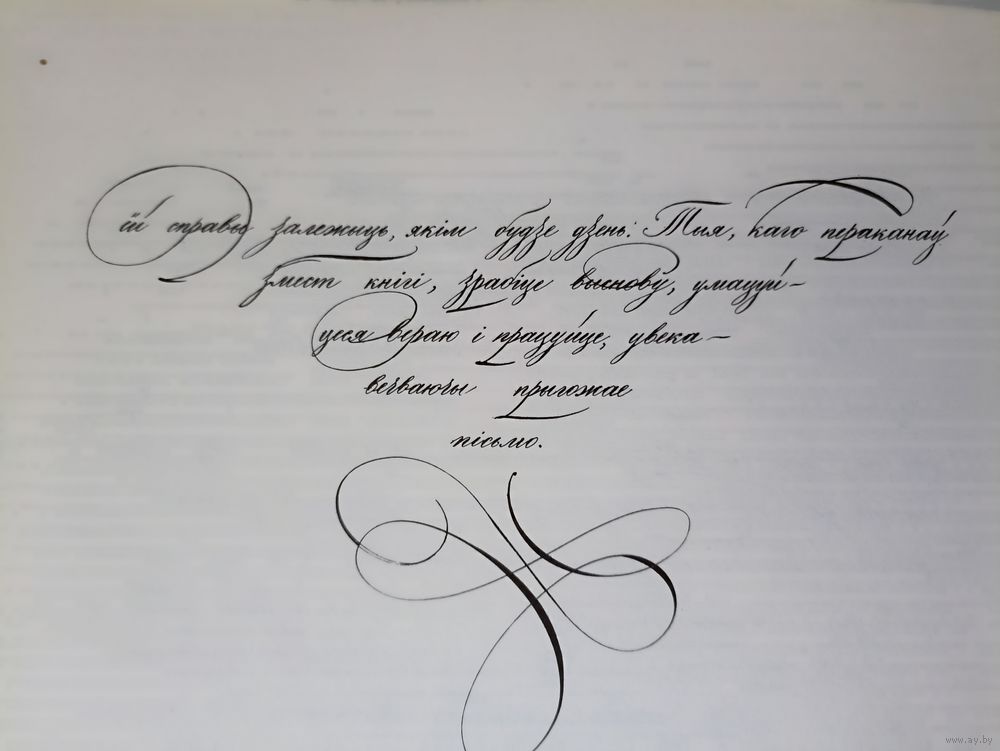 ёй справы залежыць, якім будзе дзень. Тыя, каго пераканаў
змест кнігі, зрабіце выснову, умацуй-
цеся верай і працуйце, увека-
вечваючы прыгожае
пісьмо.
www.ay.by